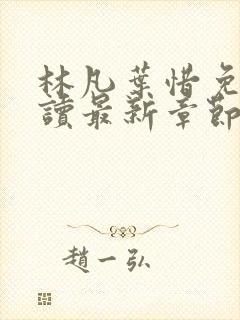 林凡葉惜免
讀最新章節
趙一弘